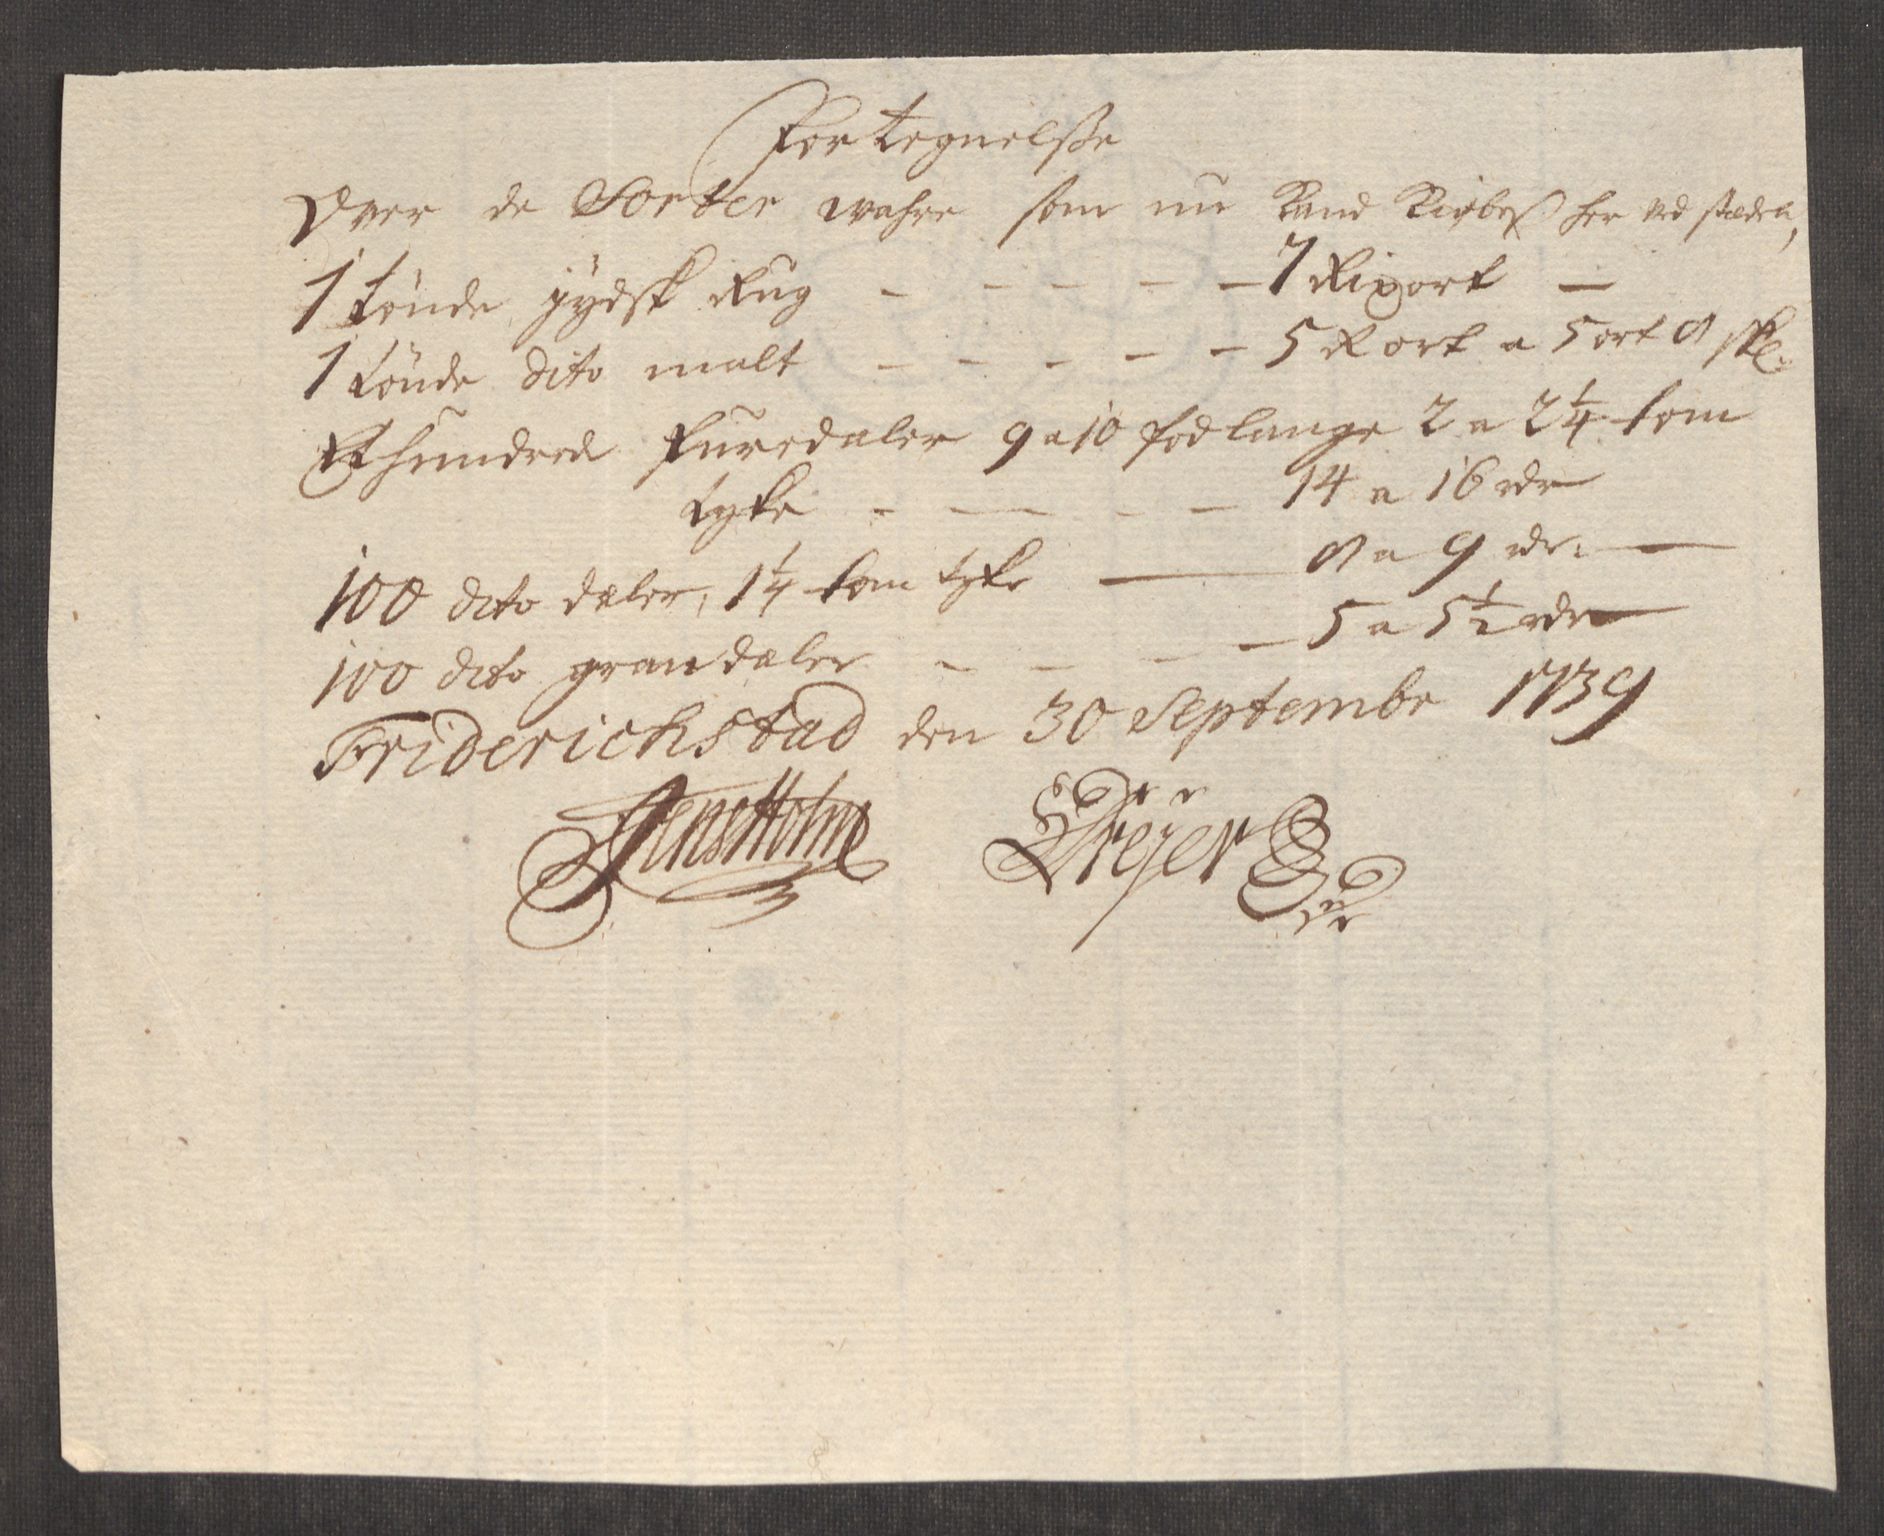 Fortegnelsse
Over de Sorter wahre som nu Kand Kiøbes her ved stæden,
1 tønde jydsk Rug - - - - - 7 Rixort -
1 tönde dito malt - - - - - 5 Rort a 5 ort 8 skl:
Et hundrede furedæler 9 a 10 fod lange 2 a 2 1/4 tom
tyke - - - - - 14 a 16 rdr
100 dito dæler, 1 1/4 tom tyke - 8 a 9 rdr: -
100 dito grandæler - - - - 5 a 5 1/2 rdr
Friderichstad den 30 Septembr 1739
Jens Holm Dreÿer